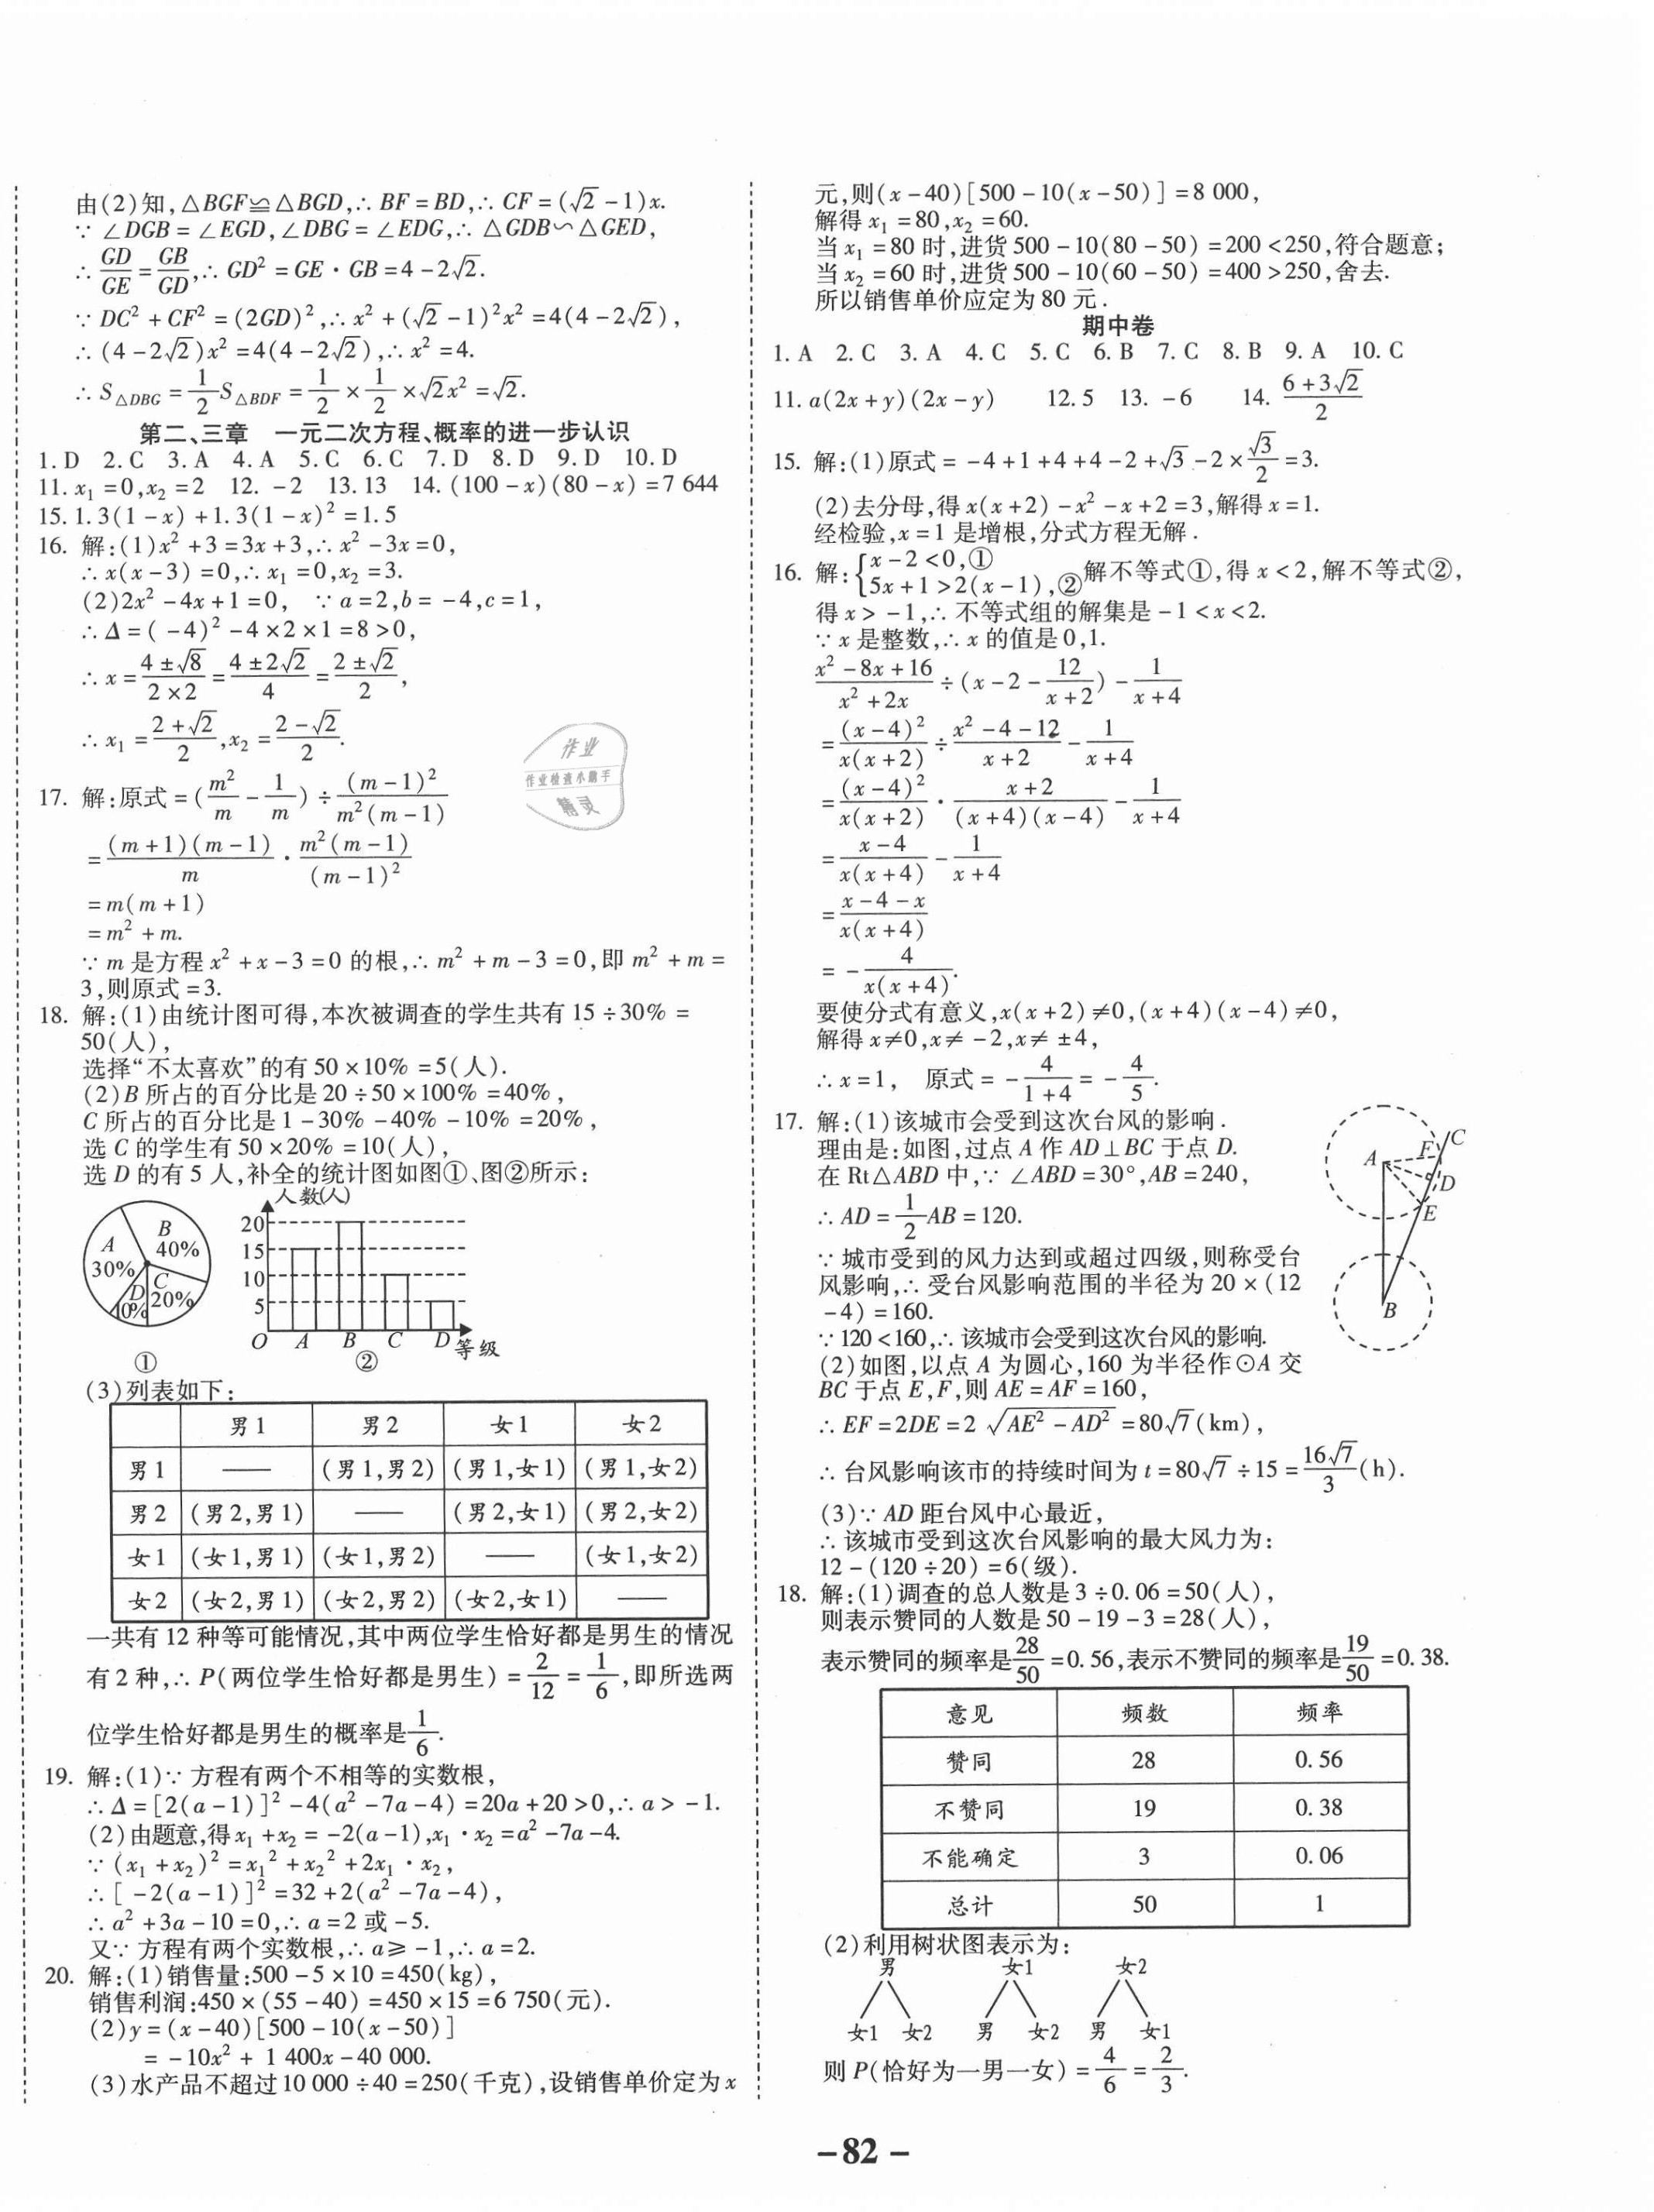 由(2)知,△BGF≌△BGD,∴ BF=BD,∴ CF=(√2-1)x.
∵ ∠DGB=∠EGD,∠DBG=∠EDG,∴ △GDB∽△GED,
∴ GD/GE=GB/GD,∴ GD²=GE·GB=4-2√2.
∵ DC²+CF²=(2GD)²,∴ x²+(√2-1)²x²=4(4-2√2),
∴ (4-2√2)x²=4(4-2√2),∴ x²=4.
∴ S△DBG=1/2S△BDF=1/2×1/2×√2x²=√2.
第二、三章 一元二次方程、概率的进一步认识
1. D 2. C 3. A 4. A 5. C 6. C 7. D 8. D 9. D 10. D
11. x₁=0,x₂=2 12. -2 13. 13 14. (100-x)(80-x)=7 644
15. 1.3(1-x)+1.3(1-x)²=1.5
16. 解:(1)x²+3=3x+3,∴ x²-3x=0,
∴ x(x-3)=0,∴ x₁=0,x₂=3.
(2)2x²-4x+1=0, ∵ a=2,b=-4,c=1,
∴ Δ=(-4)²-4×2×1=8>0,
∴ x=(4±√8)/(2×2)=(4±2√2)/4=(2±√2)/2,
∴ x₁=(2+√2)/2,x₂=(2-√2)/2.
17. 解:原式=(m²/m-1/m)÷(m-1)²/(m²(m-1))
=(m+1)(m-1)/m·m²(m-1)/(m-1)²
=m(m+1)
=m²+m.
∵ m 是方程 x²+x-3=0 的根,∴ m²+m-3=0,即 m²+m=
3,则原式=3.
18. 解:(1)由统计图可得,本次被调查的学生共有 15÷30%=
50(人),
选择“不太喜欢”的有 50×10%=5(人).
(2)B 所占的百分比是 20÷50×100%=40%,
C 所占的百分比是 1-30%-40%-10%=20%,
选 C 的学生有 50×20%=10(人),
选 D 的有 5 人,补全的统计图如图①、图②所示:
A 30% B 40% C 20% D 10%
①
人数(人)
20
15
10
5
O A B C D 等级
②
(3)列表如下:
男1 男2 女1 女2
男1 —— (男1,男2) (男1,女1) (男1,女2)
男2 (男2,男1) —— (男2,女1) (男2,女2)
女1 (女1,男1) (女1,男2) —— (女1,女2)
女2 (女2,男1) (女2,男2) (女2,女1) ——
一共有 12 种等可能情况,其中两位学生恰好都是男生的情况
有 2 种,∴ P(两位学生恰好都是男生)=2/12=1/6,即所选两
位学生恰好都是男生的概率是1/6.
19. 解:(1)∵ 方程有两个不相等的实数根,
∴ Δ=[2(a-1)]²-4(a²-7a-4)=20a+20>0,∴ a>-1.
(2)由题意,得 x₁+x₂=-2(a-1),x₁·x₂=a²-7a-4.
∵ (x₁+x₂)²=x₁²+x₂²+2x₁·x₂,
∴ [-2(a-1)]²=32+2(a²-7a-4),
∴ a²+3a-10=0,∴ a=2 或 -5.
又∵ 方程有两个实数根,∴ a≥-1,∴ a=2.
20. 解:(1)销售量:500-5×10=450(kg),
销售利润:450×(55-40)=450×15=6 750(元).
(2)y=(x-40)[500-10(x-50)]
=-10x²+1 400x-40 000.
(3)水产品不超过 10 000÷40=250(千克),设销售单价定为 x
作业
作业检查小助手
精灵
元,则(x-40)[500-10(x-50)]=8 000,
解得 x₁=80,x₂=60.
当 x₁=80 时,进货 500-10(80-50)=200<250,符合题意;
当 x₂=60 时,进货 500-10(60-50)=400>250,舍去.
所以销售单价应定为 80 元.
期中卷
1. A 2. C 3. A 4. C 5. C 6. B 7. C 8. B 9. A 10. C
11. a(2x+y)(2x-y) 12. 5 13. -6 14. (6+3√2)/2
15. 解:(1)原式=-4+1+4+4-2+√3-2×√3/2=3.
(2)去分母,得 x(x+2)-x²-x+2=3,解得 x=1.
经检验,x=1 是增根,分式方程无解.
16. 解:{x-2<0,① 5x+1>2(x-1),② 解不等式①,得 x<2,解不等式②,
得 x>-1,∴ 不等式组的解集是 -1<x<2.
∵ x 是整数,∴ x 的值是 0,1.
(x²-8x+16)/(x²+2x)÷(x-2-12/(x+2))-1/(x+4)
=(x-4)²/(x(x+2))÷(x²-4-12)/(x+2)-1/(x+4)
=(x-4)²/(x(x+2))·(x+2)/((x+4)(x-4))-1/(x+4)
=(x-4)/(x(x+4))-1/(x+4)
=(x-4-x)/(x(x+4))
=-4/(x(x+4)).
要使分式有意义,x(x+2)≠0,(x+4)(x-4)≠0,
解得 x≠0,x≠-2,x≠±4,
∴ x=1, 原式=-4/(1+4)=-4/5.
17. 解:(1)该城市会受到这次台风的影响.
理由是:如图,过点 A 作 AD⊥BC 于点 D.
在 Rt△ABD 中,∵ ∠ABD=30°,AB=240,
∴ AD=1/2AB=120.
∵ 城市受到的风力达到或超过四级,则称受台
风影响,∴ 受台风影响范围的半径为 20×(12
-4)=160.
∵ 120<160,∴ 该城市会受到这次台风的影响.
A F C D E B
(2)如图,以点 A 为圆心,160 为半径作⊙A 交
BC 于点 E,F,则 AE=AF=160,
∴ EF=2DE=2√(AE²-AD²)=80√7(km),
∴ 台风影响该市的持续时间为 t=80√7÷15=16√7/3(h).
(3)∵ AD 距台风中心最近,
∴ 该城市受到这次台风影响的最大风力为:
12-(120÷20)=6(级).
18. 解:(1)调查的总人数是 3÷0.06=50(人),
则表示赞同的人数是 50-19-3=28(人),
表示赞同的频率是28/50=0.56,表示不赞同的频率是19/50=0.38.
意见 频数 频率
赞同 28 0.56
不赞同 19 0.38
不能确定 3 0.06
总计 50 1
(2)利用树状图表示为:
男 女1 女2
女1 女2 男 女2 男 女1
则 P(恰好为一男一女)=4/6=2/3.
-82-